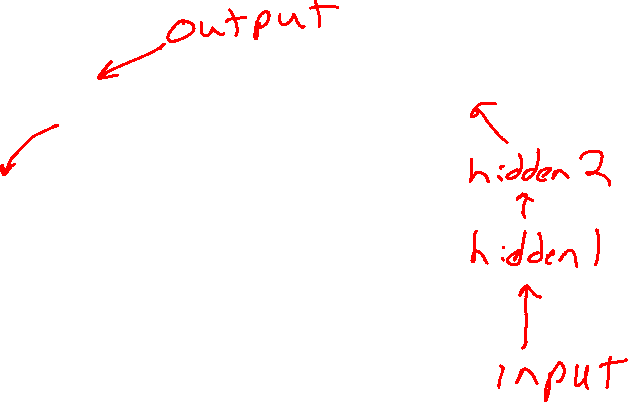 output
hidden 2
hidden 1
input